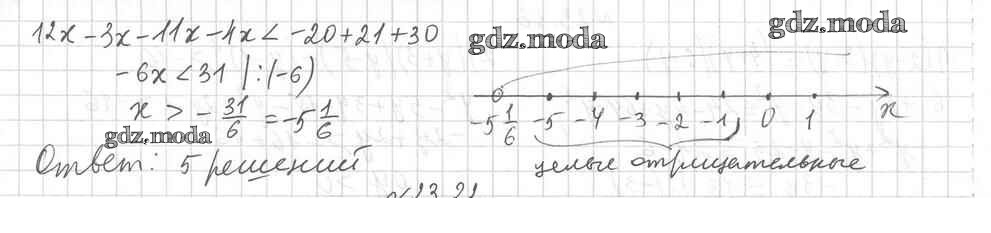 12x - 3x - 11x - 4x < -20 + 21 + 30
gdz.moda
gdz.moda
-6x < 31 | :(-6)
x > - 31/6 = -5 1/6
-5 1/6 -5 -4 -3 -2 -1 0 1 x
gdz.moda
Ответ: 5 решений
целые отрицательные